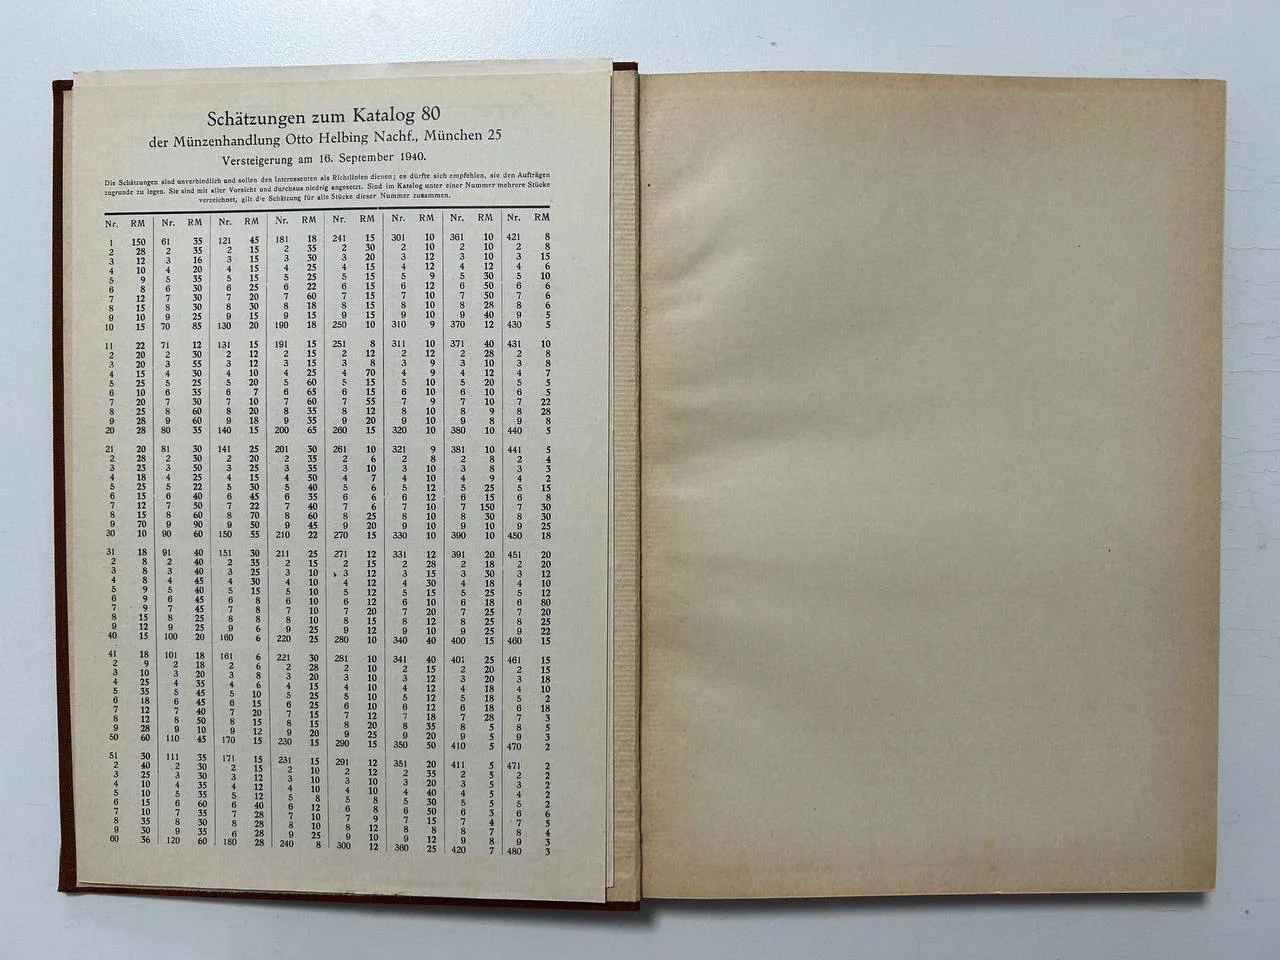 Schätzungen zum Katalog 80
der Münzenhandlung Otto Helbing Nachf., München 25
Versteigerung am 16. September 1940.
Die Schätzungen sind unverbindlich und sollen den Interessenten als Richtlinien dienen; es dürfte sich empfehlen, sie den Aufträgen
zugrunde zu legen. Sie sind mit aller Vorsicht und durchaus niedrig angesetzt. Sind im Katalog unter einer Nummer mehrere Stücke
verzeichnet, gilt die Schätzung für alle Stücke dieser Nummer zusammen.
Nr. RM Nr. RM Nr. RM Nr. RM Nr. RM Nr. RM Nr. RM Nr. RM
1 150 61 35 121 45 181 18 241 15 301 10 361 10 421 8
2 28 2 35 2 15 2 35 2 30 2 10 2 10 2 8
3 12 3 16 3 15 3 30 3 20 3 12 3 10 3 15
4 10 4 20 4 15 4 25 4 15 4 12 4 12 4 6
5 9 5 35 5 15 5 25 5 15 5 9 5 30 5 10
6 8 6 30 6 25 6 22 6 15 6 12 6 50 6 6
7 12 7 30 7 20 7 60 7 15 7 10 7 50 7 6
8 15 8 30 8 30 8 18 8 15 8 10 8 28 8 6
9 10 9 25 9 15 9 15 9 15 9 10 9 40 9 5
10 15 70 85 130 20 190 18 250 10 310 9 370 12 430 5
11 22 71 12 131 15 191 15 251 8 311 10 371 40 431 10
2 20 2 30 2 12 2 15 2 12 2 12 2 28 2 8
3 20 3 55 3 12 3 15 3 8 3 9 3 10 3 8
4 15 4 30 4 10 4 25 4 70 4 9 4 12 4 7
5 25 5 25 5 20 5 60 5 15 5 10 5 20 5 5
6 10 6 35 6 7 6 65 6 15 6 10 6 10 6 5
7 20 7 30 7 10 7 60 7 55 7 9 7 10 7 22
8 25 8 60 8 20 8 35 8 12 8 10 8 9 8 28
9 28 9 60 9 18 9 35 9 20 9 10 9 8 9 8
20 28 80 35 140 15 200 65 260 15 320 10 380 10 440 5
21 20 81 30 141 25 201 30 261 10 321 9 381 10 441 5
2 28 2 30 2 20 2 35 2 6 2 8 2 8 2 4
3 23 3 50 3 25 3 35 3 10 3 10 3 8 3 3
4 18 4 25 4 15 4 50 4 7 4 10 4 9 4 2
5 25 5 22 5 30 5 40 5 6 5 12 5 25 5 15
6 15 6 40 6 45 6 35 6 6 6 12 6 15 6 8
7 12 7 50 7 22 7 40 7 6 7 10 7 150 7 30
8 15 8 60 8 70 8 60 8 25 8 10 8 30 8 30
9 70 9 90 9 50 9 45 9 20 9 10 9 10 9 25
30 10 90 60 150 55 210 22 270 15 330 10 390 10 450 18
31 18 91 40 151 30 211 25 271 12 331 12 391 20 451 20
2 8 2 40 2 35 2 15 2 15 2 28 2 18 2 20
3 8 3 40 3 25 3 10 3 12 3 15 3 30 3 12
4 8 4 45 4 30 4 10 4 12 4 30 4 18 4 10
5 9 5 40 5 15 5 10 5 12 5 15 5 25 5 12
6 9 6 45 6 8 6 10 6 12 6 10 6 18 6 80
7 9 7 45 7 8 7 10 7 20 7 20 7 25 7 20
8 15 8 25 8 8 8 10 8 15 8 12 8 25 8 25
9 12 9 25 9 6 9 25 9 12 9 10 9 25 9 22
40 15 100 20 160 6 220 25 280 10 340 40 400 15 460 15
41 18 101 18 161 6 221 30 281 10 341 40 401 25 461 15
2 9 2 18 2 6 2 28 2 10 2 15 2 20 2 15
3 10 3 20 3 8 3 20 3 10 3 12 3 20 3 18
4 25 4 35 4 6 4 15 4 10 4 12 4 18 4 10
5 35 5 45 5 10 5 25 5 10 5 12 5 18 5 2
6 18 6 45 6 15 6 25 6 10 6 12 6 18 6 18
7 12 7 40 7 20 7 15 7 12 7 18 7 28 7 3
8 12 8 50 8 15 8 15 8 20 8 35 8 5 8 5
9 28 9 10 9 12 9 20 9 25 9 20 9 5 9 3
50 60 110 45 170 15 230 15 290 15 350 50 410 5 470 2
51 30 111 35 171 15 231 15 291 12 351 20 411 5 471 2
2 40 2 30 2 15 2 10 2 12 2 35 2 5 2 2
3 25 3 30 3 12 3 10 3 10 3 20 3 5 3 2
4 10 4 35 4 12 4 10 4 10 4 40 4 5 4 2
5 10 5 35 5 12 5 8 5 8 5 30 5 5 5 2
6 15 6 60 6 40 6 12 6 8 6 50 6 3 6 6
7 10 7 35 7 28 7 10 7 9 7 15 7 4 7 5
8 35 8 30 8 28 8 10 8 12 8 8 8 7 8 4
9 30 9 35 6 28 9 25 9 10 9 12 9 8 9 3
60 36 120 60 180 28 240 8 300 12 360 25 420 7 480 3